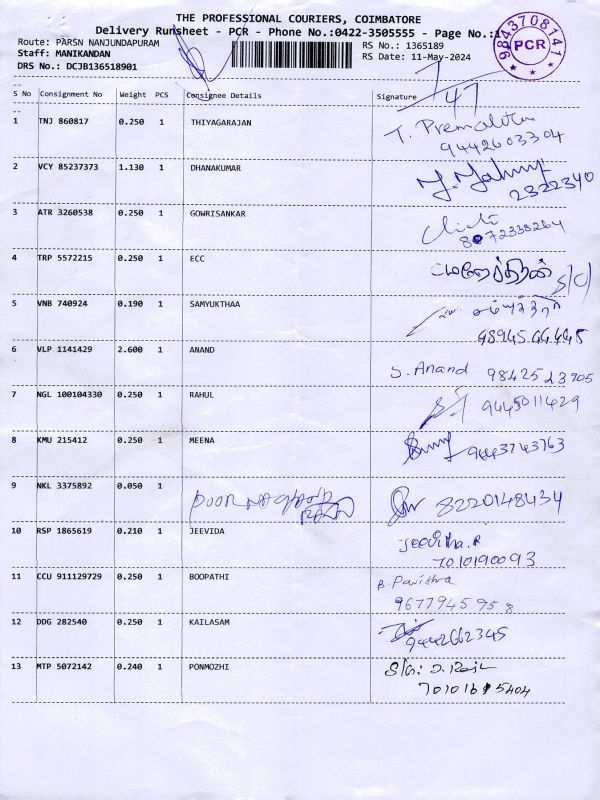 THE PROFESSIONAL COURIERS, COIMBATORE
Delivery Runsheet - PCR - Phone No.:0422-3505555 - Page No.:1
Route: PARSN NANJUNDAPURAM
RS No.: 1365189
Staff: MANIKANDAN
RS Date: 11-May-2024
DRS No.: DCJB136518901
9843708141
PCR
S No Consignment No Weight PCS Consignee Details Signature
47
1 TNJ 860817 0.250 1 THIYAGARAJAN T. Premalatha
9442603304
2 VCY 85237373 1.130 1 DHANAKUMAR
2322340
3 ATR 3260538 0.250 1 GOWRISANKAR
8072338264
4 TRP 5572215 0.250 1 ECC
5 VNB 740924 0.190 1 SAMYUKTHAA
6 VLP 1141429 2.600 1 ANAND S. Anand 9842523705
7 NGL 100104330 0.250 1 RAHUL 9445011429
8 KMU 215412 0.250 1 MEENA 9443743763
9 NKL 3375892 0.050 1 8220148434
10 RSP 1865619 0.210 1 JEEVIDA Jeevitha.R
7010190093
11 CCU 911129729 0.250 1 BOOPATHI B. Pavithra
9677945958
12 DDG 282540 0.250 1 KAILASAM 9442662345
13 MTP 5072142 0.240 1 PONMOZHI